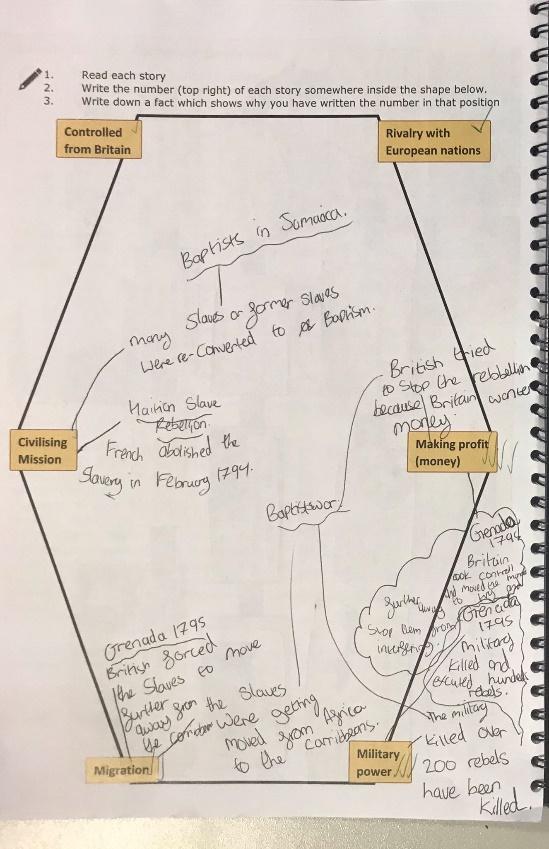 1. Read each story
2. Write the number (top right) of each story somewhere inside the shape below.
3. Write down a fact which shows why you have written the number in that position
Controlled
from Britain
Rivalry with
European nations
Baptists in Jamaica.
many Slaves or former Slaves
were re-converted to Baptism.
Haitian Slave
Rebellion.
French abolished the
Slavery in February 1794.
Civilising
Mission
British tried
to stop the rebbelion
because Britain
money.
Making profit
(money)
Baptist war
Grenada
1794
Britain
took control
and moved
to
further
away
Stop them from
Grenada
1795
Military
killed and
hundreds
rebels.
Grenada 1795
British forced
the slaves to move
further from
away
the
the Slaves
were getting
moved from Africa
to the Carribeans.
The military
killed over
200 rebels
have been
killed.
Migration
Military
power